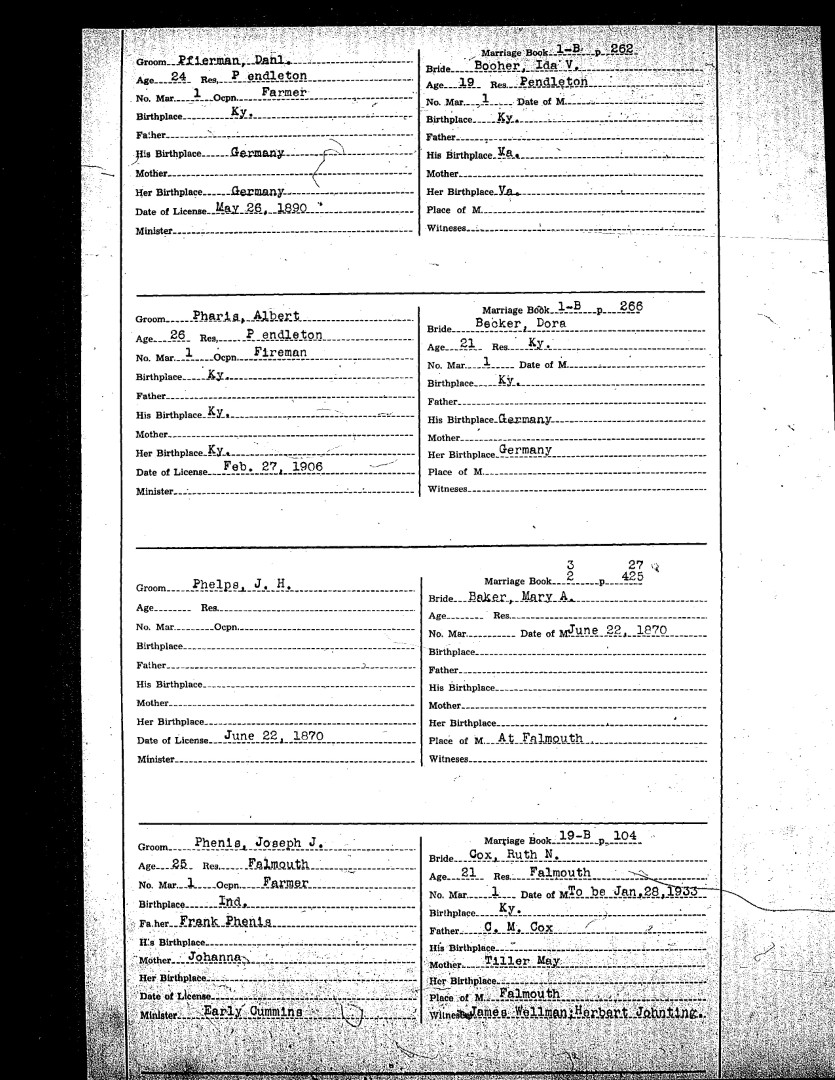 Groom Pfierman, Danl.
Age 24 Res. P endleton
No. Mar. 1 Ocpn. Farmer
Birthplace Ky.
Father
His Birthplace Germany
Mother
Her Birthplace Germany
Date of License May 26, 1890
Minister
Marriage Book 1-B p 262
Bride Booher, Ida V.
Age 19 Res. Pendleton
No. Mar. 1 Date of M.
Birthplace Ky.
Father
His Birthplace Va.
Mother
Her Birthplace Va.
Place of M.
Witneses
Groom Pharis, Albert
Age 26 Res. P endleton
No. Mar. 1 Ocpn. Fireman
Birthplace Ky.
Father
His Birthplace Ky.
Mother
Her Birthplace Ky.
Date of License Feb. 27, 1906
Minister
Marriage Book 1-B p 266
Bride Becker, Dora
Age 21 Res. Ky.
No. Mar. 1 Date of M.
Birthplace Ky.
Father
His Birthplace Germany
Mother
Her Birthplace Germany
Place of M.
Witneses
Groom Phelps, J. H.
Age Res.
No. Mar. Ocpn.
Birthplace
Father
His Birthplace
Mother
Her Birthplace
Date of License June 22, 1870
Minister
3 27
Marriage Book 2 p 425
Bride Baker, Mary A.
Age Res.
No. Mar. Date of M. June 22, 1870
Birthplace
Father
His Birthplace
Mother
Her Birthplace
Place of M. At Falmouth
Witneses
Groom Phenis, Joseph J.
Age 25 Res. Falmouth
No. Mar. 1 Ocpn. Farmer
Birthplace Ind.
Father Frank Phenis
His Birthplace
Mother Johanna
Her Birthplace
Date of License
Minister Early Cummins
Marriage Book 19-B p 104
Bride Cox, Ruth N.
Age 21 Res. Falmouth
No. Mar. 1 Date of M. To be Jan,28,1933
Birthplace Ky.
Father C. M. Cox
His Birthplace
Mother Tiller May
Her Birthplace
Place of M. Falmouth
Witneses James Wellman;Herbert Johnting.